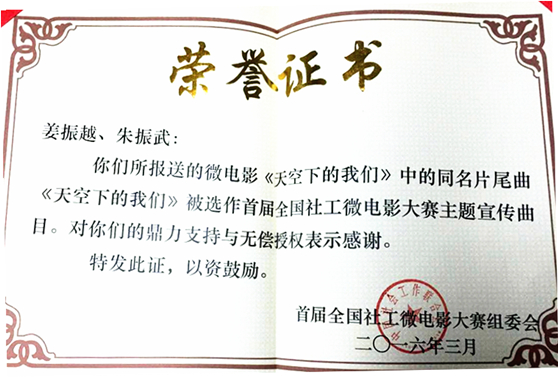 荣誉证书
姜振越、朱振武：
你们所报送的微电影《天空下的我们》中的同名片尾曲
《天空下的我们》被选作首届全国社工微电影大赛主题宣传曲
目。对你们的鼎力支持与无偿授权表示感谢。
特发此证，以资鼓励。
首届全国社工微电影大赛组委会
二〇一六年三月